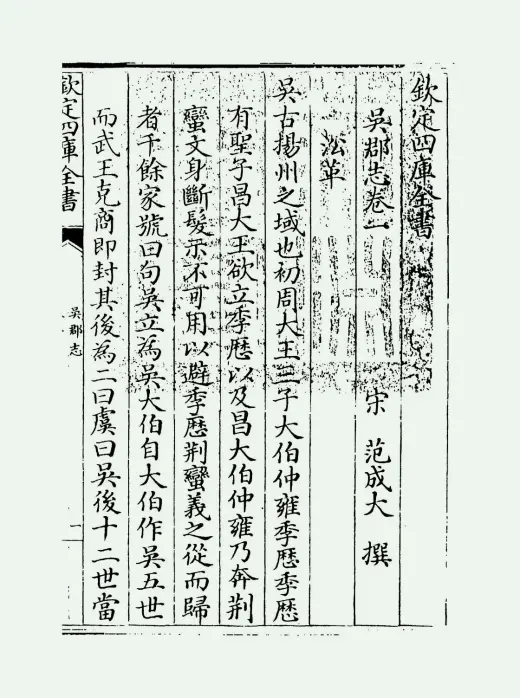 欽定四庫全書
吳郡志卷一
宋 范成大 撰
沿革
吳古揚州之域也初周大王三子大伯仲雍季厯季厯
有聖子昌大王欲立季厯以及昌大伯仲雍乃奔荆
蠻文身斷髮示不可用以避季厯荆蠻義之從而歸
者千餘家號曰句吳立為吳大伯自大伯作吳五世
而武王克商即封其後為二曰虞曰吳後十二世當
欽定四庫全書
吳郡志
一